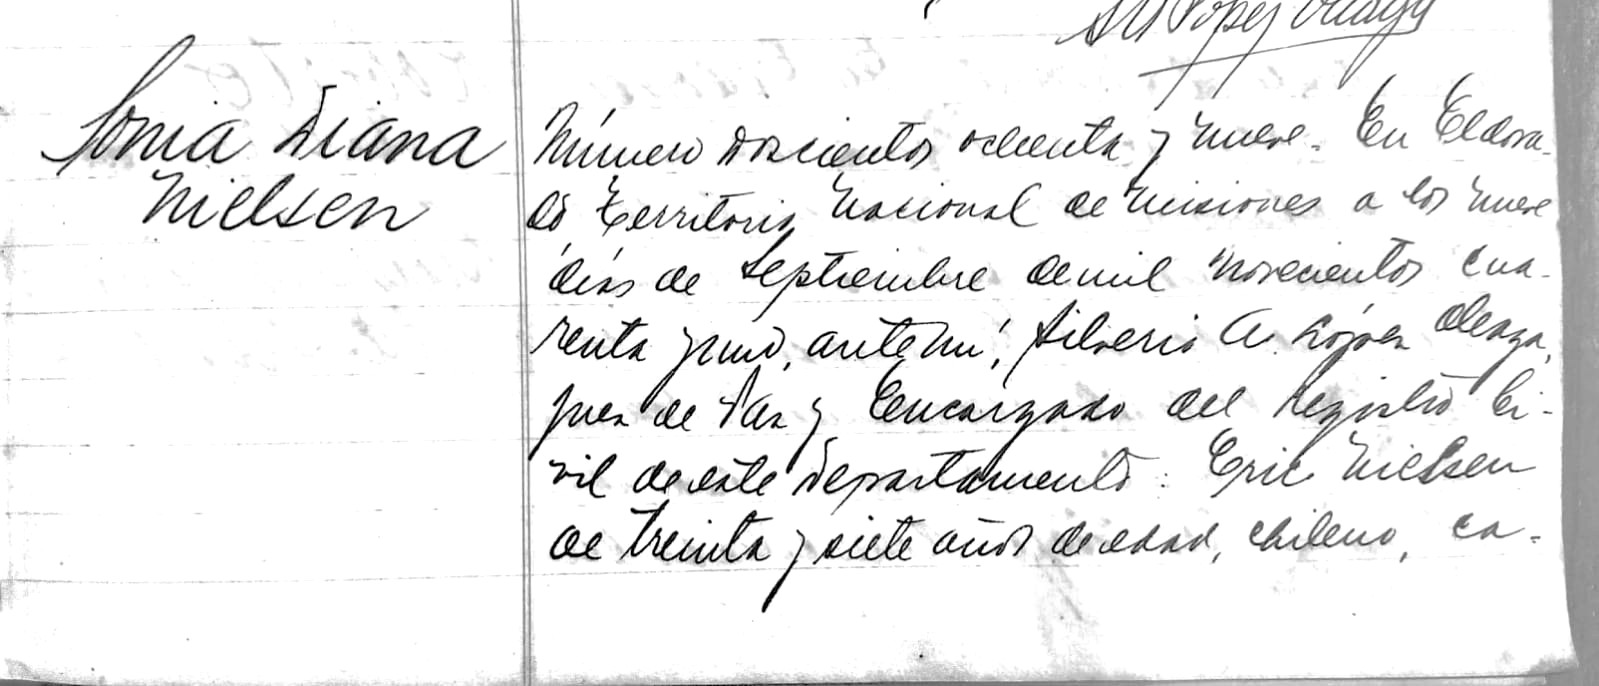 Sonia Diana
Nielsen
Número doscientos ochenta y nueve. En Eldora-
do Territorio Nacional de Misiones a los nueve
días de Septiembre de mil novecientos cua-
renta y uno, ante mí, Silverio A. López Oleaga,
Juez de Paz y Encargado del Registro Ci-
vil de este Departamento: Eric Nielsen
de treinta y siete años de edad, chileno, ca-